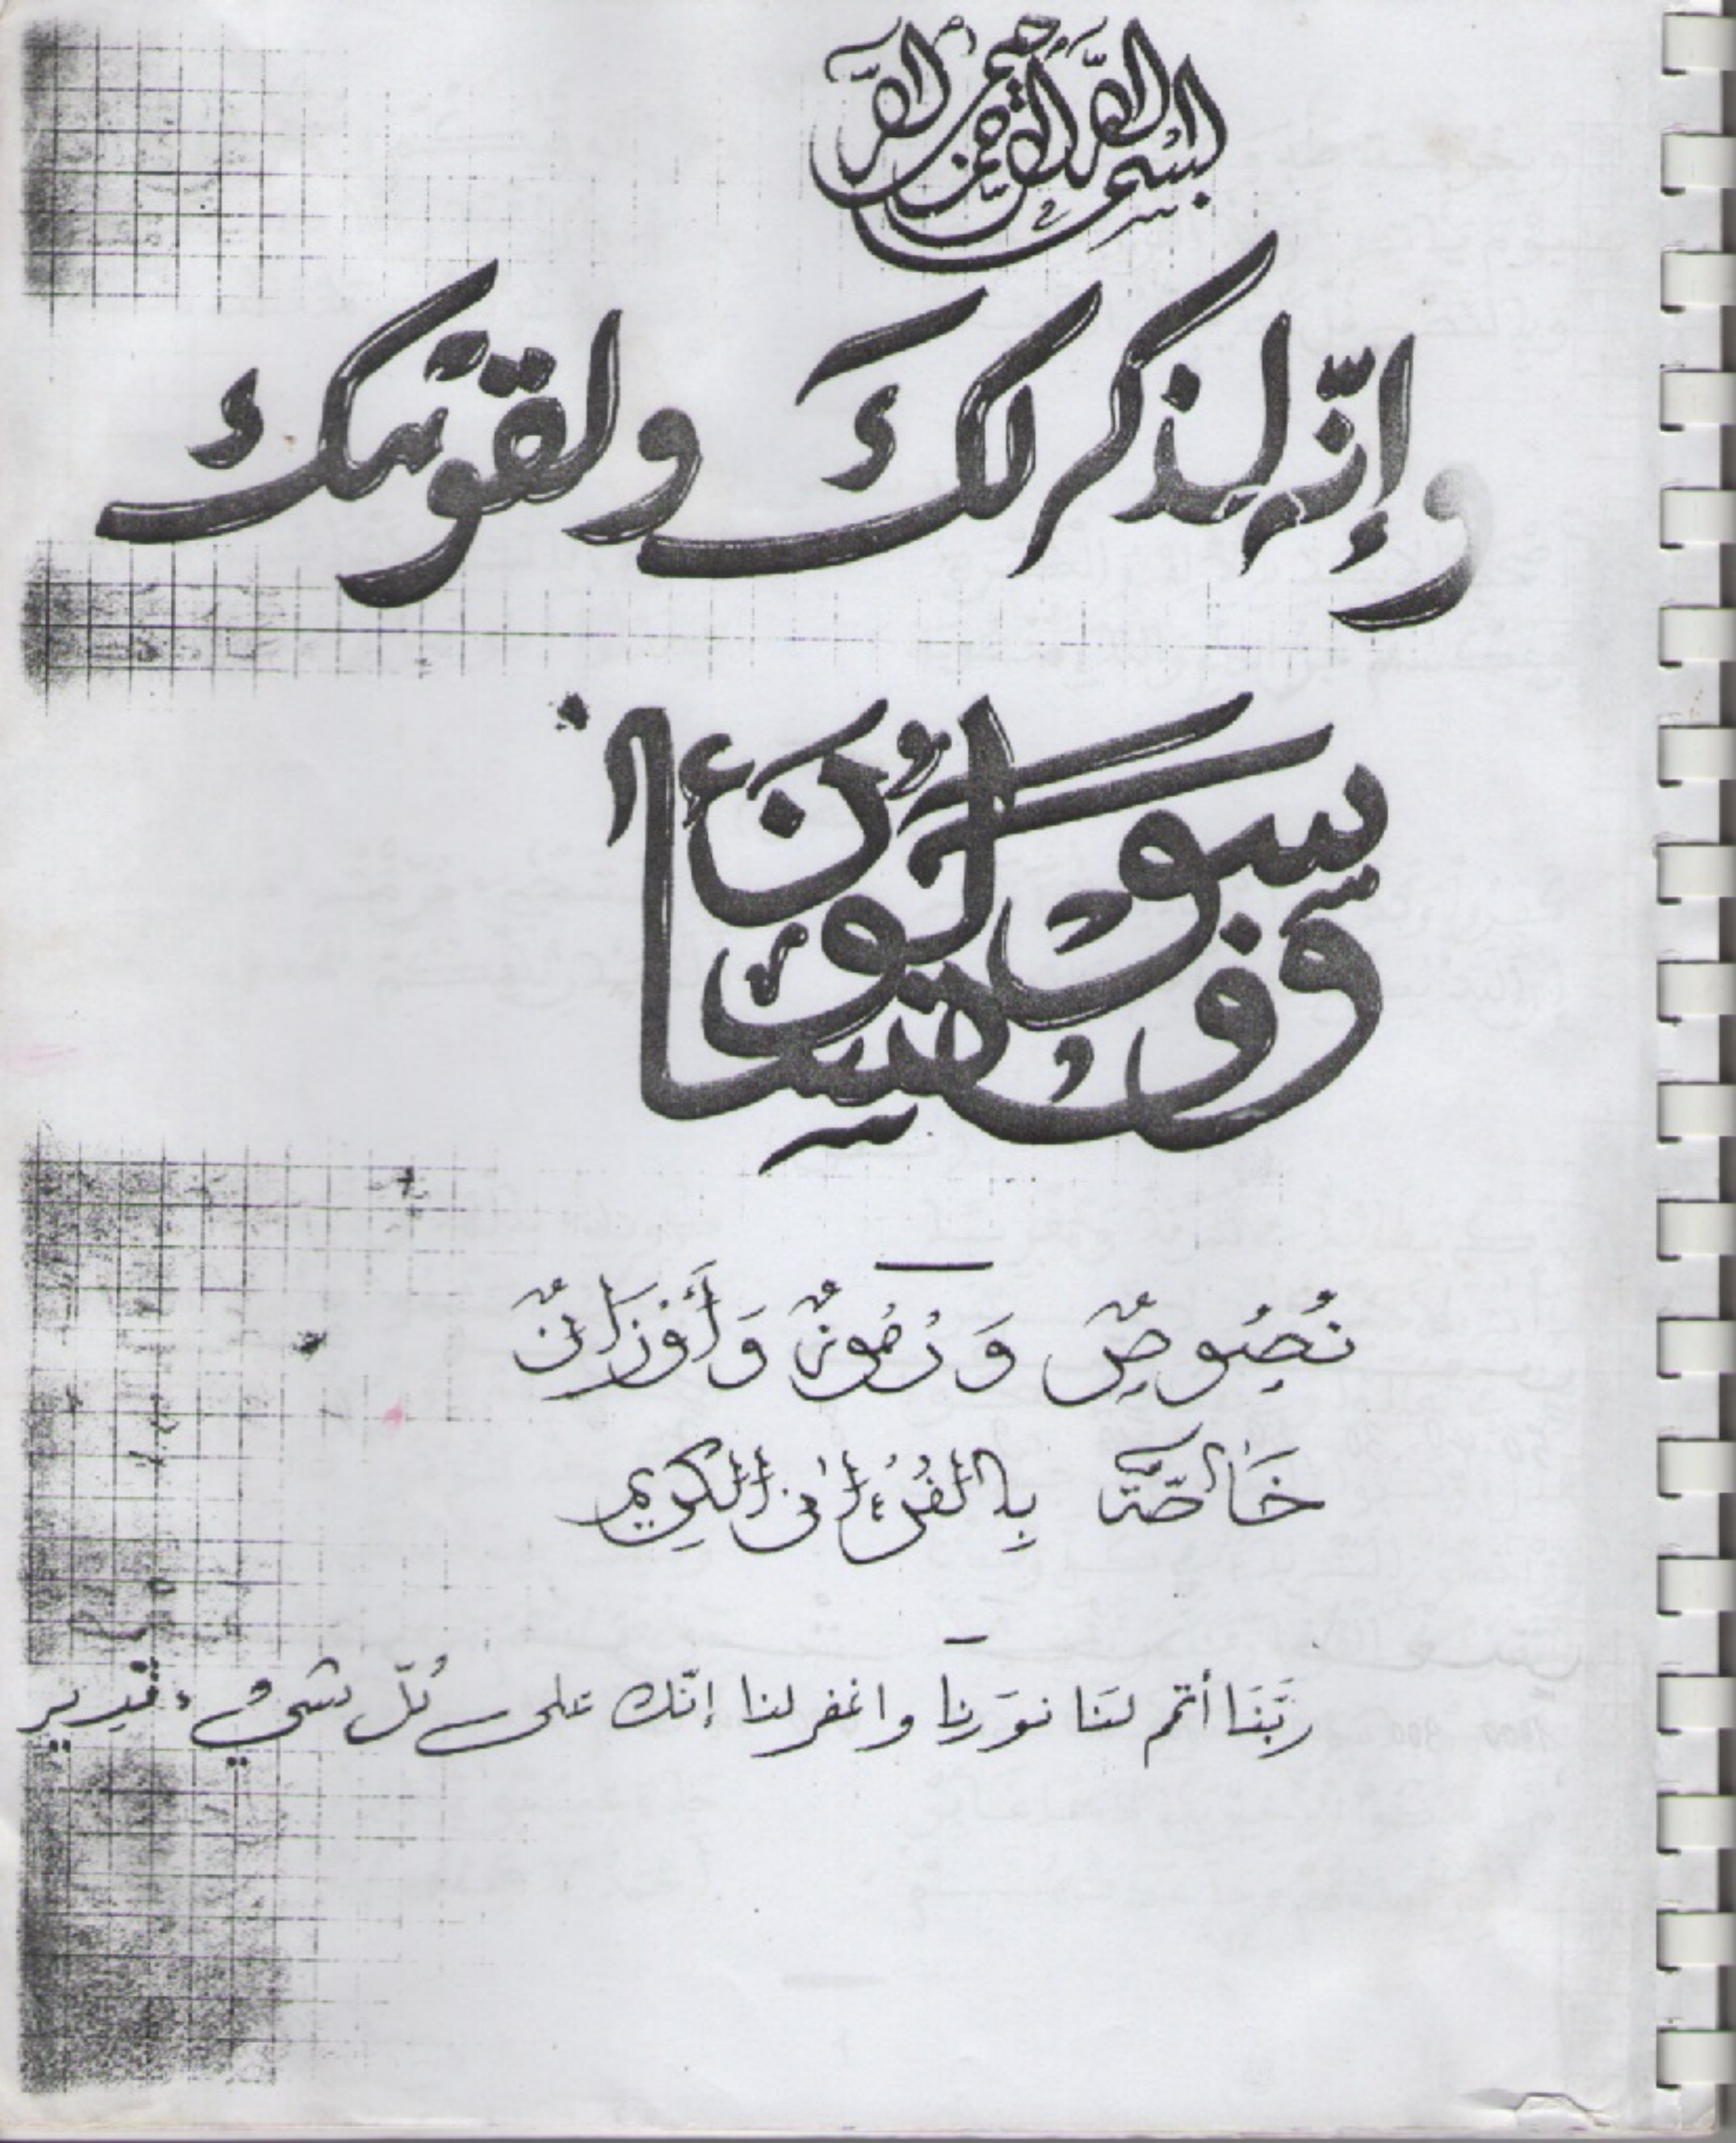 بسم الله الرحمن الرحيم
وإنّه لذكر لكَ ولقومك
وسوف تسألون
نُصُوصٌ وَرُمُوزٌ وَأَوْزَانٌ
خَاصَّةٌ بِالقُرْءَانِ الكَرِيمِ
رَبَّنَا أتمم لنَا نورَنا واغفر لنا إنّك على كُلّ شيء قدير